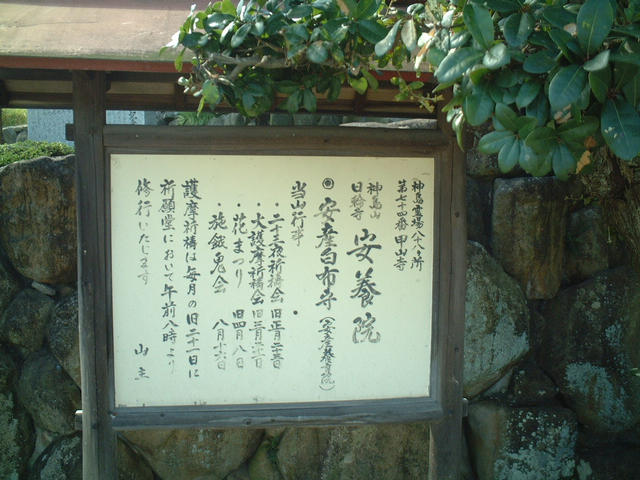 神島霊場八十八ヶ所
第七十四番 甲山寺
神島山
日輪寺 安養院
安産白布寺（安産養育院）
当山行事
・二十三夜祈祷会 旧正月二十三日
・大護摩祈祷会 旧三月二十一日
・花まつり 旧四月八日
・施餓鬼会 八月十六日
護摩祈祷は毎月の旧二十一日に
祈願堂において午前八時より
修行いたします
山主